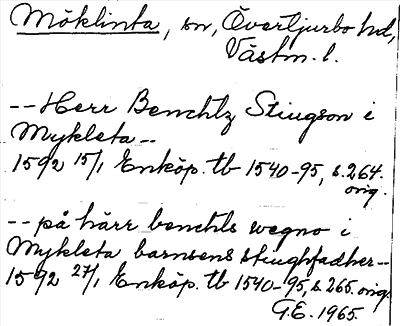 Möklinta, sn, Övertjurbo hd,
Västm. l.
-- Herr Benchtz Stingson i
Mykleta --
1592 15/1 Enköp. tb 1540-95, s. 264.
orig.
-- på härr benchts wegno i
Mykleta barnsens stiughfadher --
1592 27/1 Enköp. tb 1540-95, s. 265. orig.
G.E. 1965.